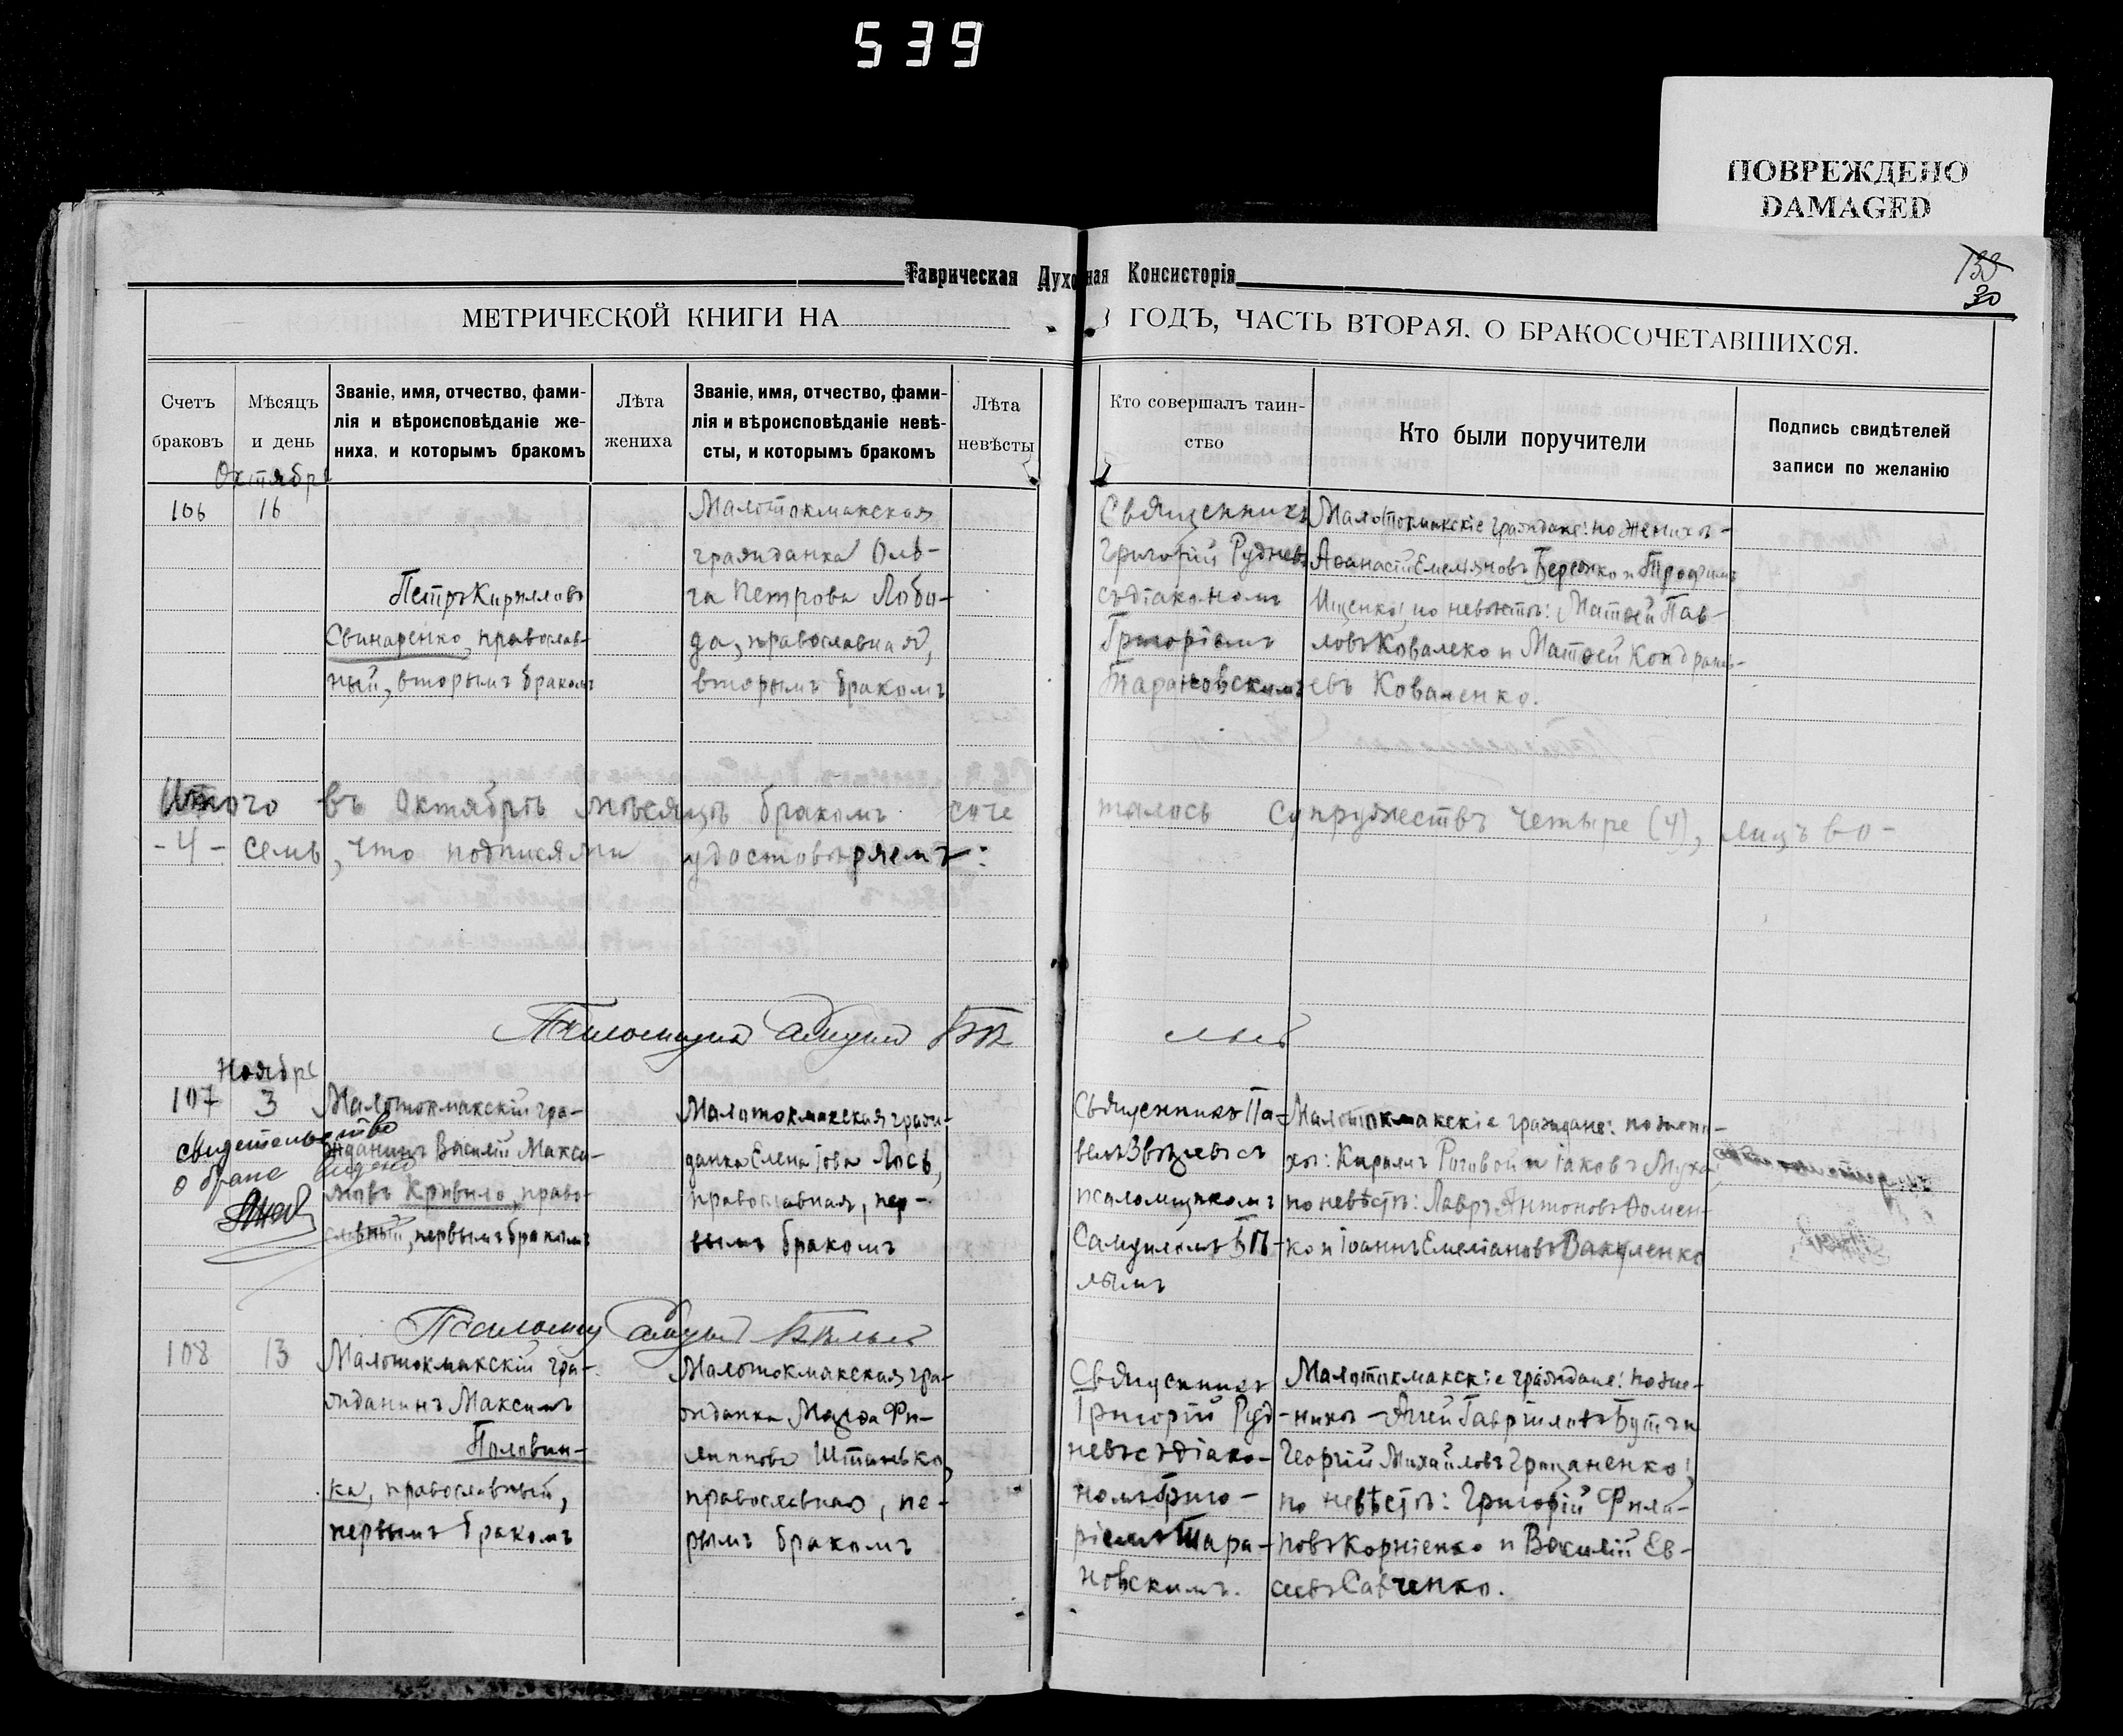 539
ПОВРЕЖДЕНО
DAMAGED
Таврическая Духовная Консисторія
30
МЕТРИЧЕСКОЙ КНИГИ НА ГОДЪ, ЧАСТЬ ВТОРАЯ, О БРАКОСОЧЕТАВШИХСЯ.
Счетъ браковъ
Мѣсяцъ и день
Званіе, имя, отчество, фами-
лія и вѣроисповѣданіе же-
ниха, и которымъ бракомъ
Лѣта жениха
Званіе, имя, отчество, фами-
лія и вѣроисповѣданіе невѣ-
сты, и которымъ бракомъ
Лѣта невѣсты
Кто совершалъ таин-
ство
Кто были поручители
Подпись свидѣтелей
записи по желанію
Октябрь
106
16
Петръ Кирилловъ
Свинаренко, православ-
ный, вторымъ бракомъ
Малотокмакская
гражданка Оль-
га Петрова Лобо-
да, православная,
вторымъ бракомъ
Священникъ
Григорій Рудневъ
съ діакономъ
Григоріемъ
Тарановскимъ
Малотокмакскіе граждане: по женихѣ-
Аѳанасій Емельяновъ и Трофимъ
Ищенко; по невѣстѣ: Матѳей Пав-
ловъ Ковалеко и Матѳей Кондрать-
евъ Коваленко.
Итого въ Октябрѣ мѣсяцѣ бракомъ соче
талось супружествъ четыре (4), лицъ во-
-4- семь, что подписями удостовѣряемъ:
Псаломщикъ Самуилъ Бѣ
лый
Ноябрь
107
3
свидетельство
о браке выдано
Малотокмакскій гра-
жданинъ Василій Макси-
мовъ Кривило, право-
славный, первымъ бракомъ
Малотокмакская граж-
данка Елена Іова Лось,
православная, пер-
вымъ бракомъ
Священникъ Па-
велъ Звѣздевъ съ
псаломщикомъ
Самуиломъ Бѣ-
лымъ
Малотокмакскіе граждане: по жени-
хѣ: Кириллъ Роговой и Іаковъ Муха;
по невѣстѣ: Лавръ Антоновъ Ѳомен-
ко и Іоаннъ Емеліановъ Вакуленко
Псаломщ Самуилъ Бѣлый
108
13
Малотокмакскій гра-
жданинъ Максимъ
Половин-
ка, православный,
первымъ бракомъ
Малотокмакская гра-
жданка Марѳа Фи-
липпова Штанько,
православная, пе-
рымъ бракомъ
Священникъ
Григорій Руд-
невъ съ діако-
номъ Григо-
ріемъ Тара-
новскимъ.
Малотокмакскіе граждане: по же-
нихѣ - Гавріиловъ Бутъ и
Георгій Михайловъ Грицаненко;
по невѣстѣ: Григорій Фили-
повъ Корніенко и Василій Ев-
сеевъ Савченко.